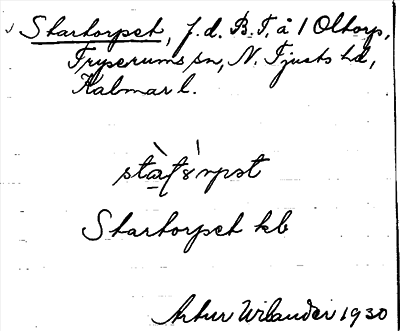 Startorpet, f. d. B. T. å 1 Oltorp,
Fryserums sn, N. Tjusts hd,
Kalmar l.
Startorpet kb
Artur Wilander 1930